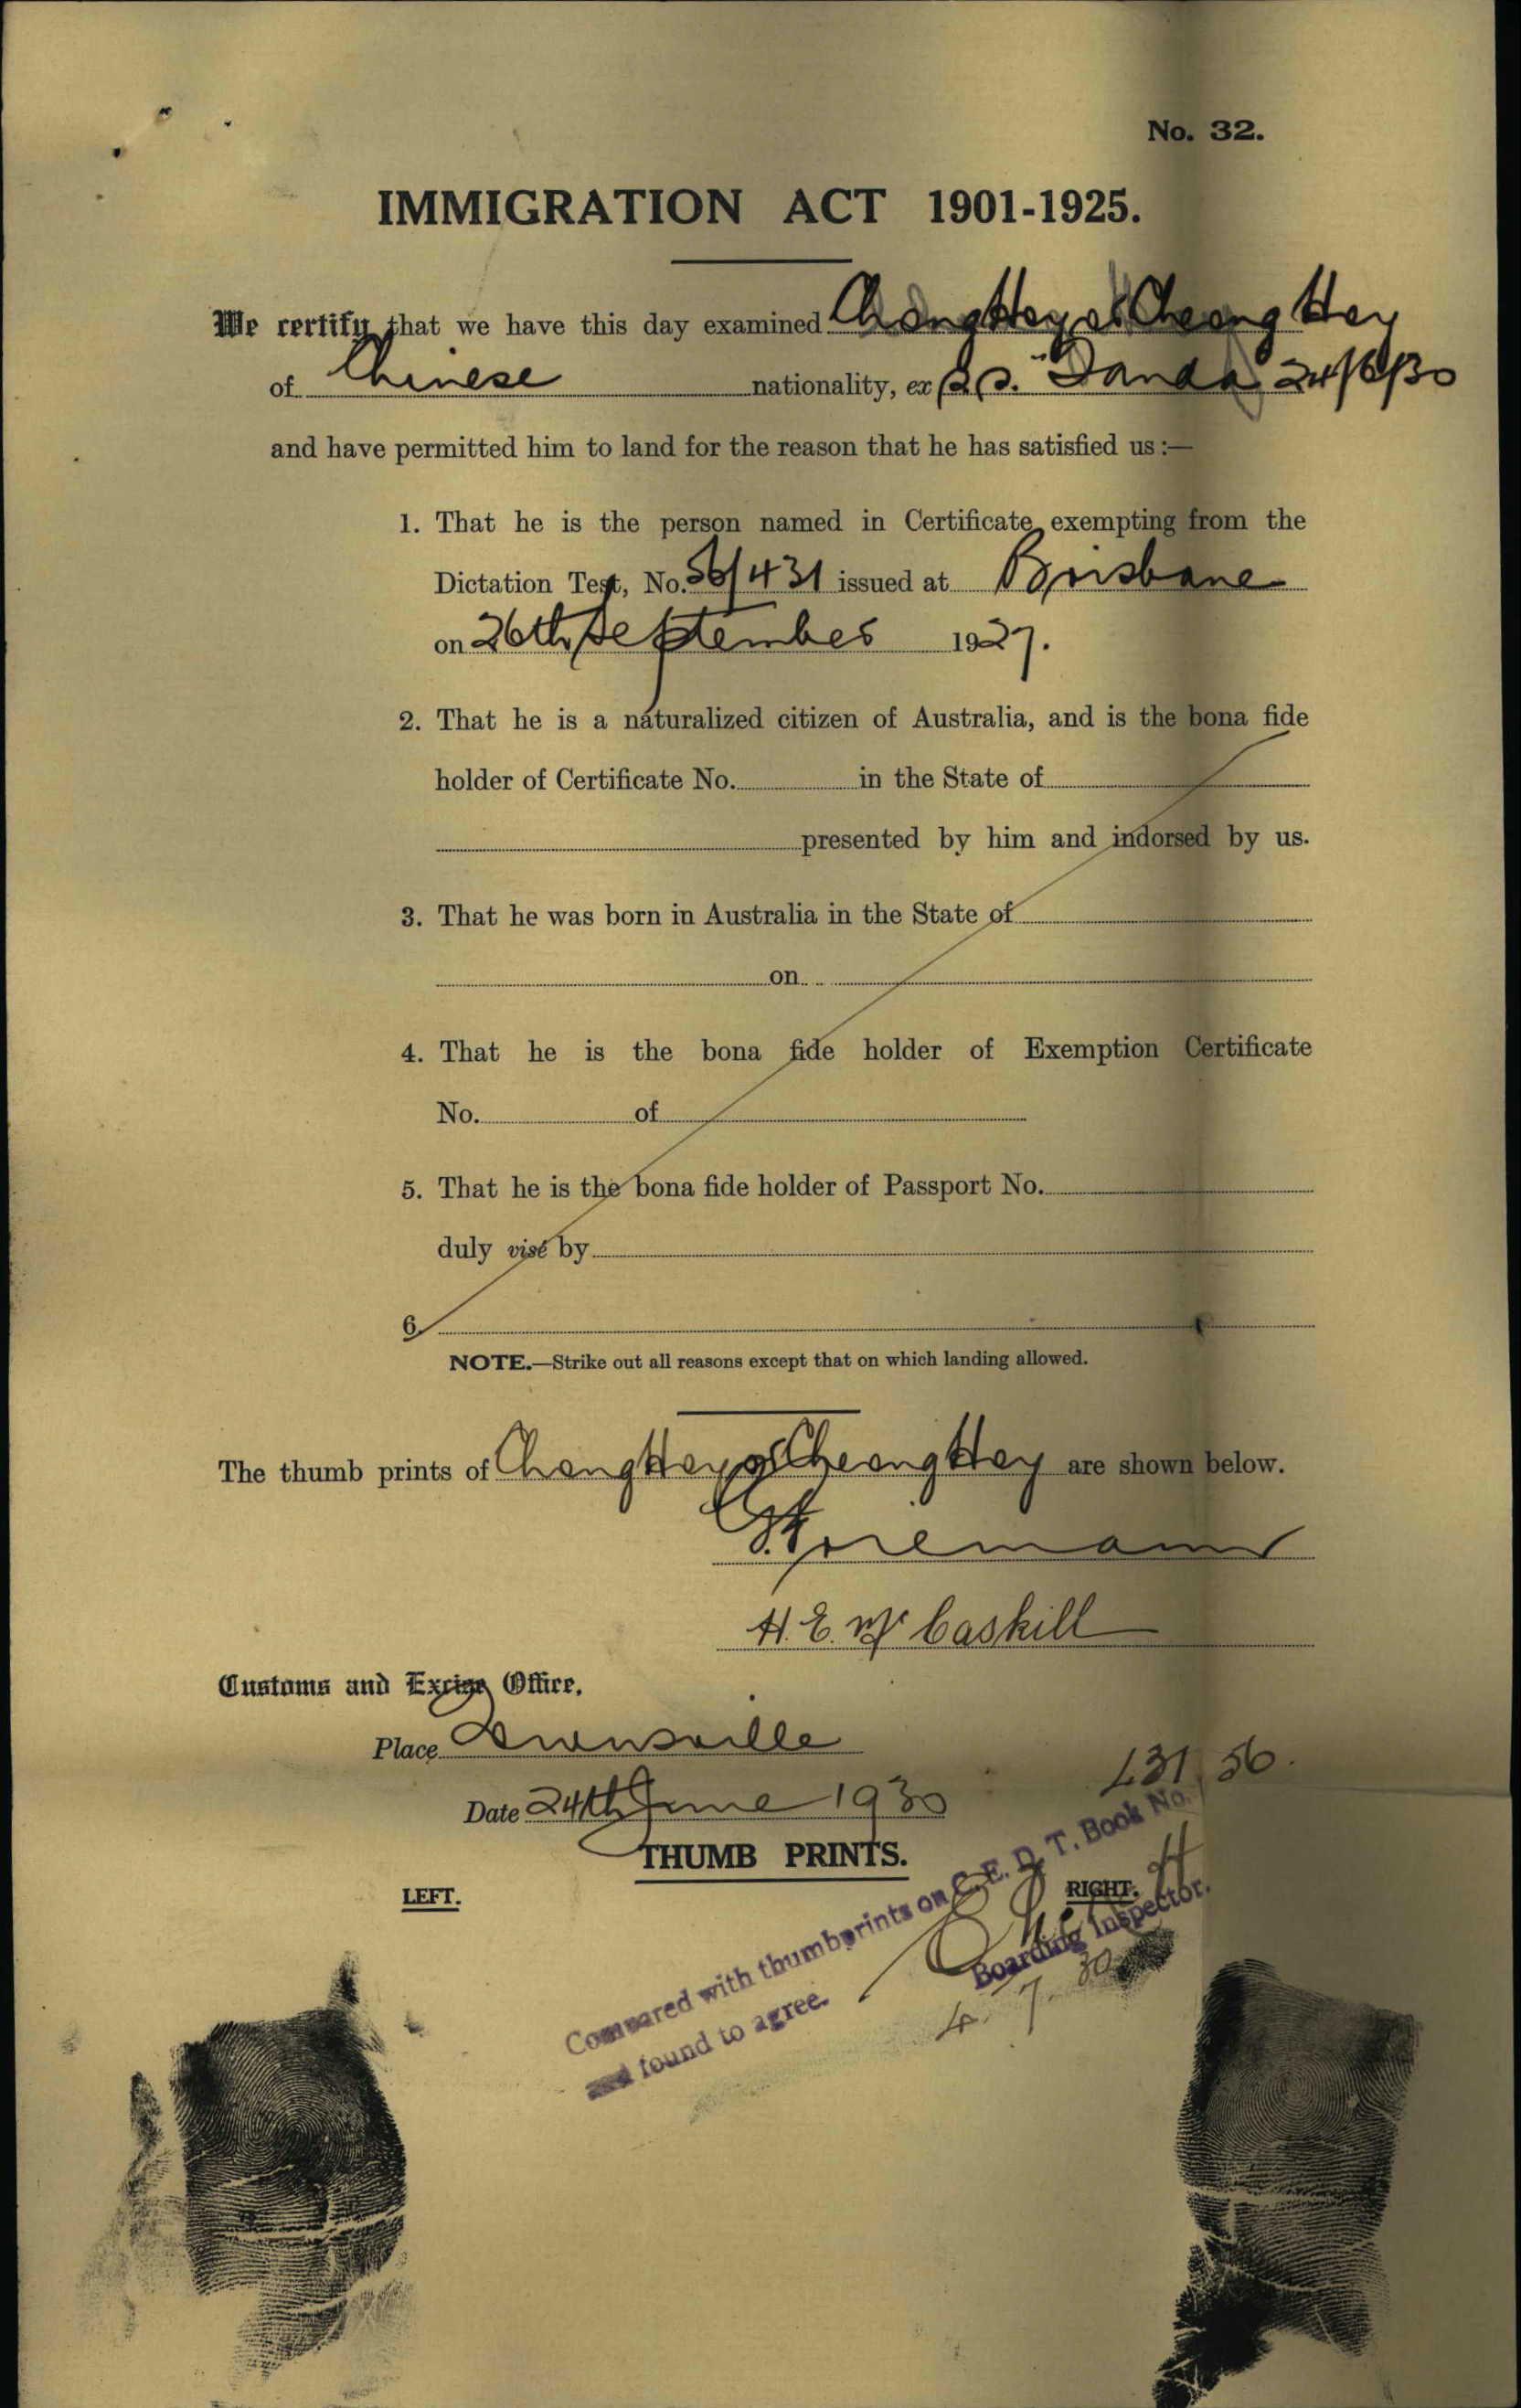 No. 32.
IMMIGRATION ACT 1901-1925.
We certify that we have this day examined Chong Hey or Cheong Hey
of Chinese nationality, ex S.S. "Tanda" 24/6/30
and have permitted him to land for the reason that he has satisfied us :—
1. That he is the person named in Certificate exempting from the
Dictation Test, No. 56/431 issued at Brisbane
on 26th September 1927.
2. That he is a naturalized citizen of Australia, and is the bona fide
holder of Certificate No. in the State of
presented by him and indorsed by us.
3. That he was born in Australia in the State of
on
4. That he is the bona fide holder of Exemption Certificate
No. of
5. That he is the bona fide holder of Passport No.
duly visé by
6.
NOTE.—Strike out all reasons except that on which landing allowed.
The thumb prints of Chong Hey or Cheong Hey are shown below.
H. E. McCaskill
Customs and Excise Office.
Place Townsville
Date 24th June 1930
431 56.
THUMB PRINTS.
LEFT.
RIGHT.
Compared with thumbprints on C. E. D. T. Book No.
and found to agree.
Boarding Inspector.
4. 7. 30